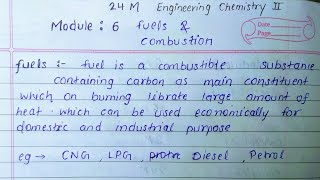 24 M Engineering Chemistry II
Module: 6 fuels &
combustion
Date
Page
fuels :- fuel is a combustible substance
containing carbon as main constituent
which on burning librate large amount of
heat which can be used economically for
domestric and industrial purpose
eg → CNG, LPG, Diesel, Petrol